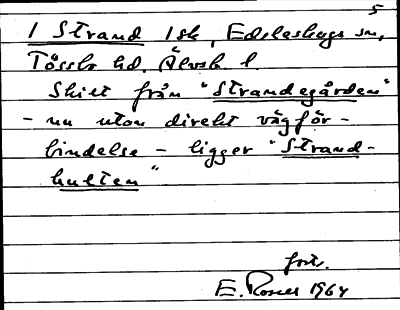 5
1 Strand 1sk, Edsleskogs sn,
Tössbo hd. Älvsb. l.
Skilt från "Strandegården"
- nu utan direkt vägför-
bindelse - ligger "Strand-
hulten"
forts.
E. 1964